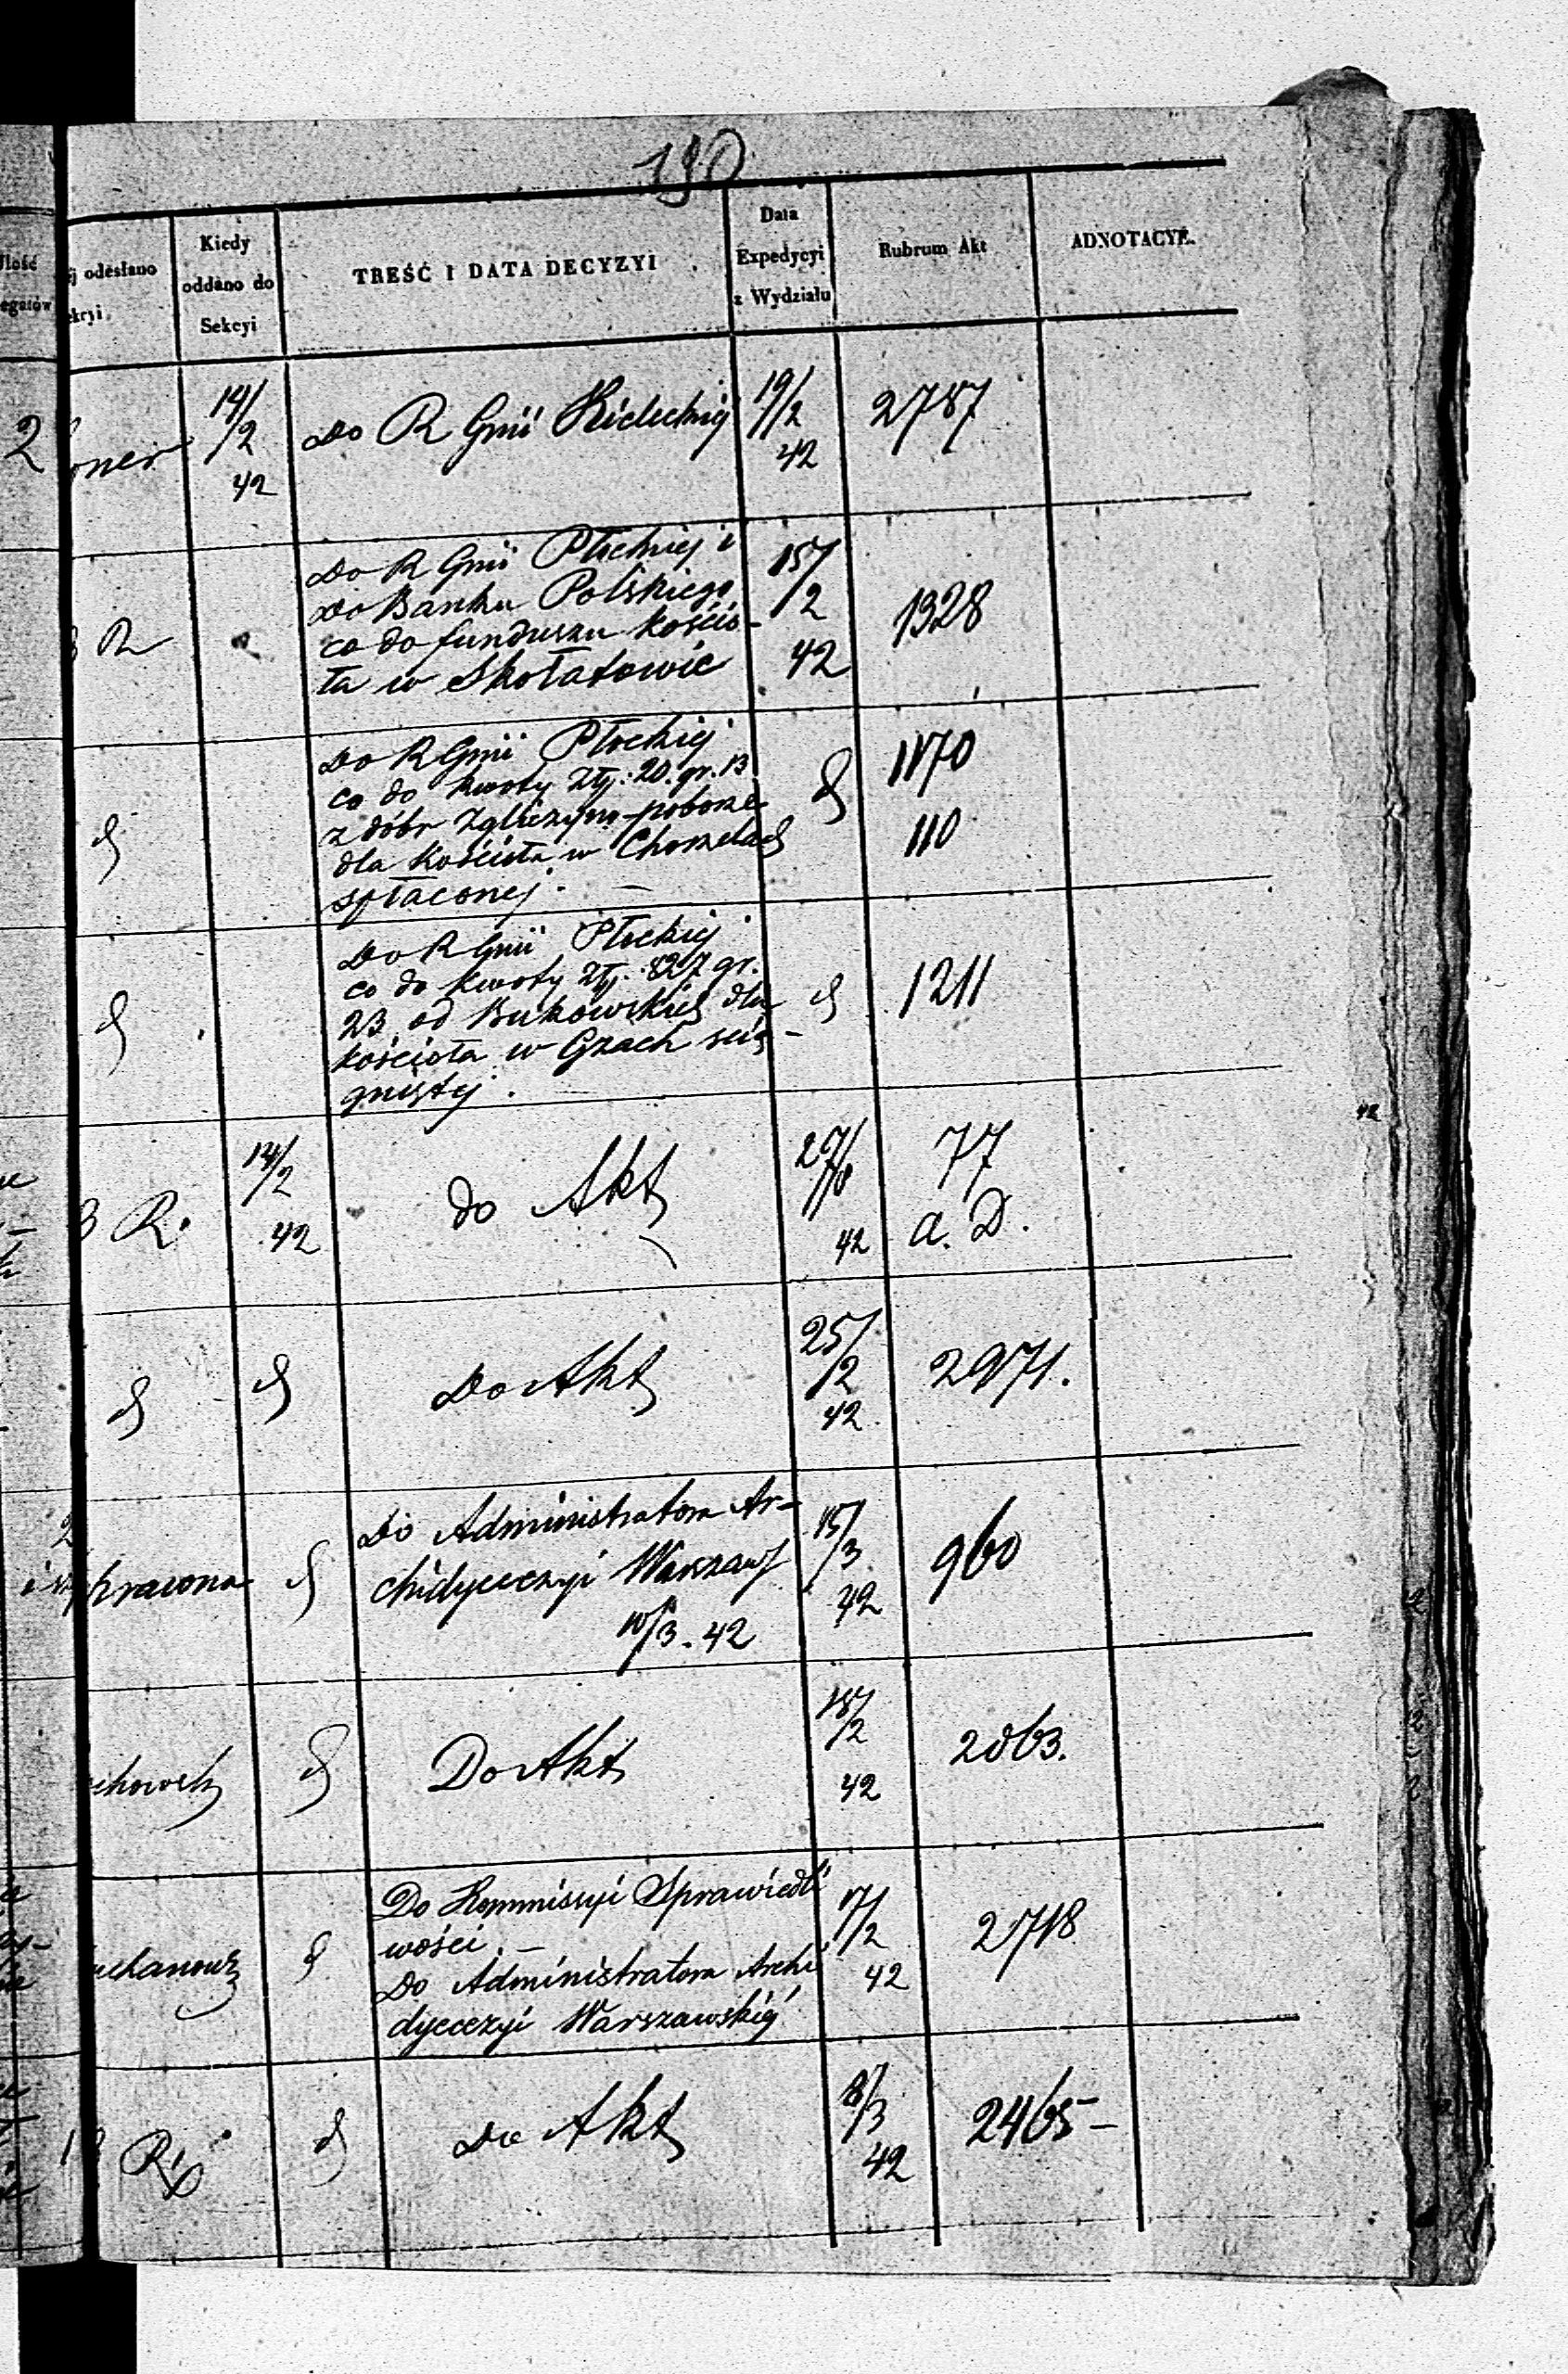 190
Ilość
egatów
j odesłano
ekcyi
Kiedy
oddano do
Sekcyi
TREŚĆ I DATA DECYZYI
Data
Expedycyi
z Wydziału
Rubrum Akt
ADNOTACYE.
2
14/2
42
do R Gnii Kieleckiej
19/2
42
2787
R
Do R Gnii Płockiej i
do Banku Polskiego
co do funduszu kościo-
ła w Skołatowie
15/2
42
1328
Do R Gnii Płockiej
co do kwoty Złp: 20. gr. 13
z dóbr Zgliczyno-poborze
dla kościoła w Chorzelach
spłaconej. —
1170
110
Do R Gnii Płockiej
co do kwoty Złp. 827 gr.
23 od Bukowskich dla
kościoła w Gzach ścią-
gniętej.
1211
R.
14/2
42
do Akt
42
77
a. D.
Do Akt
25/2
42
2971.
Do Administratora Ar-
chidyecezyi Warszaws
10/3. 42
15/3
42
960
Do Akt
18/2
42
2063.
Do Kommissyi Sprawiedli
wości —
Do Administratora Archi
dyecezyi Warszawskiej
17/2
42
2718
Do Akt
8/3
42
2465 —